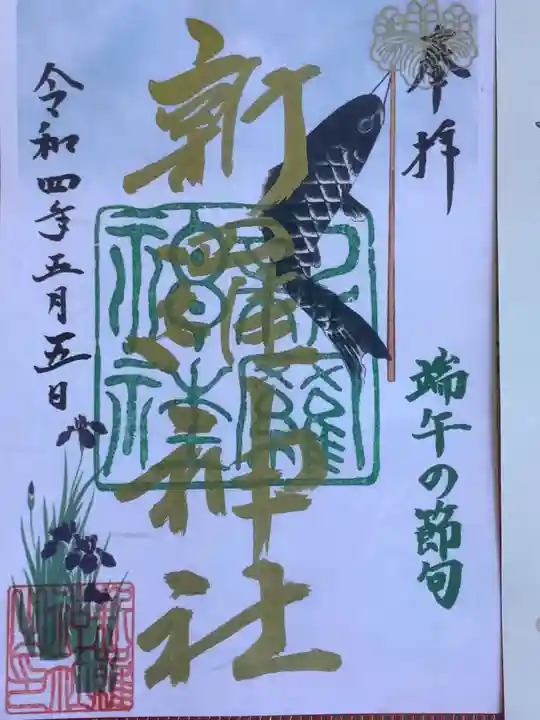 奉拝
端午の節句
新羅神社
令和四年五月五日